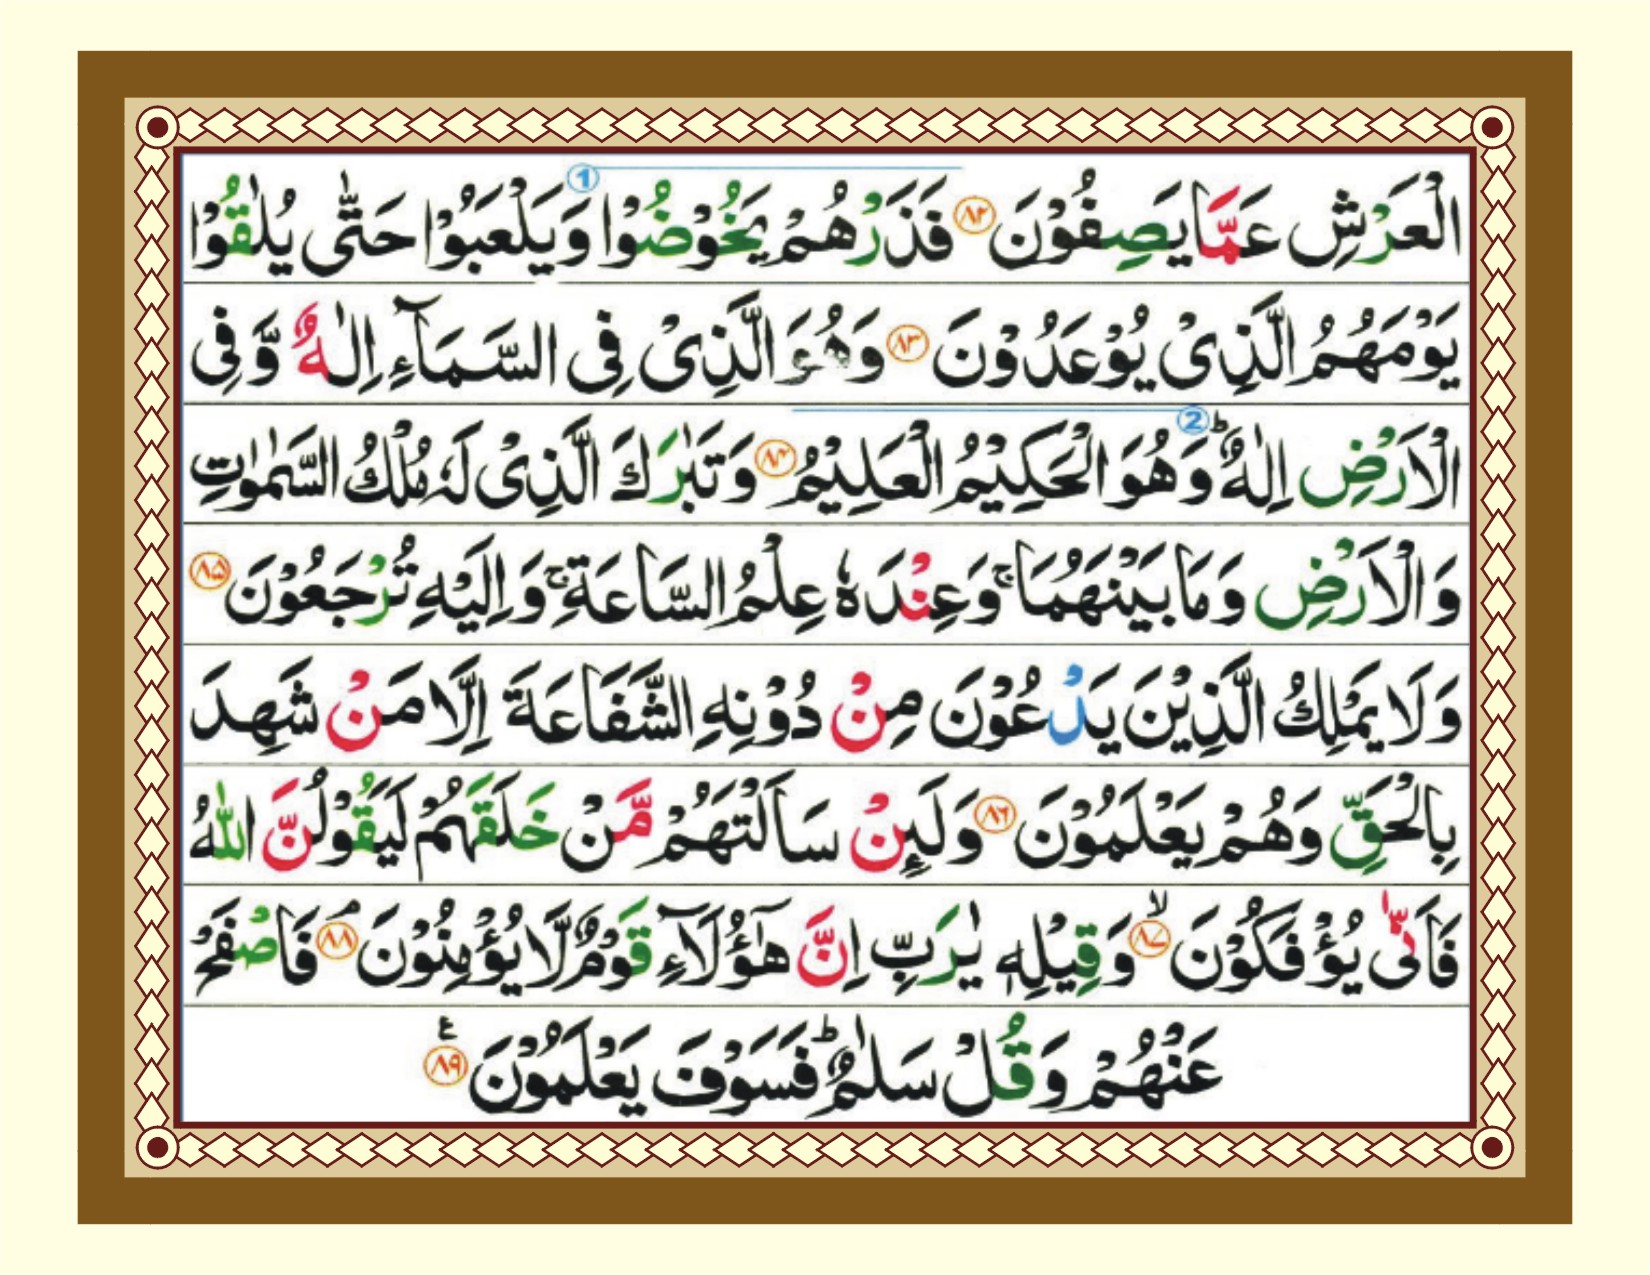 الْعَرْشِ عَمَّا يَصِفُوْنَ ﴿۸۲﴾ فَذَرْهُمْ يَخُوْضُوْا ① وَيَلْعَبُوْا حَتّٰى يُلٰقُوْا
يَوْمَهُمُ الَّذِىْ يُوْعَدُوْنَ ﴿۸۳﴾ وَهُوَ الَّذِىْ فِى السَّمَآءِ اِلٰهٌ وَّفِى
الْاَرْضِ اِلٰهٌ ؕ ② وَهُوَ الْحَكِيْمُ الْعَلِيْمُ ﴿۸۴﴾ وَتَبٰرَكَ الَّذِىْ لَهٗ مُلْكُ السَّمٰوٰتِ
وَالْاَرْضِ وَمَا بَيْنَهُمَا ۚ وَعِنْدَهٗ عِلْمُ السَّاعَةِ ۚ وَاِلَيْهِ تُرْجَعُوْنَ ﴿۸۵﴾
وَلَا يَمْلِكُ الَّذِيْنَ يَدْعُوْنَ مِنْ دُوْنِهِ الشَّفَاعَةَ اِلَّا مَنْ شَهِدَ
بِالْحَقِّ وَهُمْ يَعْلَمُوْنَ ﴿۸۶﴾ وَلَئِنْ سَاَلْتَهُمْ مَّنْ خَلَقَهُمْ لَيَقُوْلُنَّ اللّٰهُ
فَاَنّٰى يُؤْفَكُوْنَ ۙ ﴿۸۷﴾ وَقِيْلِهٖ يٰرَبِّ اِنَّ هٰٓؤُلَآءِ قَوْمٌ لَّا يُؤْمِنُوْنَ ۘ ﴿۸۸﴾ فَاصْفَحْ
عَنْهُمْ وَقُلْ سَلٰمٌ ؕ فَسَوْفَ يَعْلَمُوْنَ ﴿۸۹﴾ ع